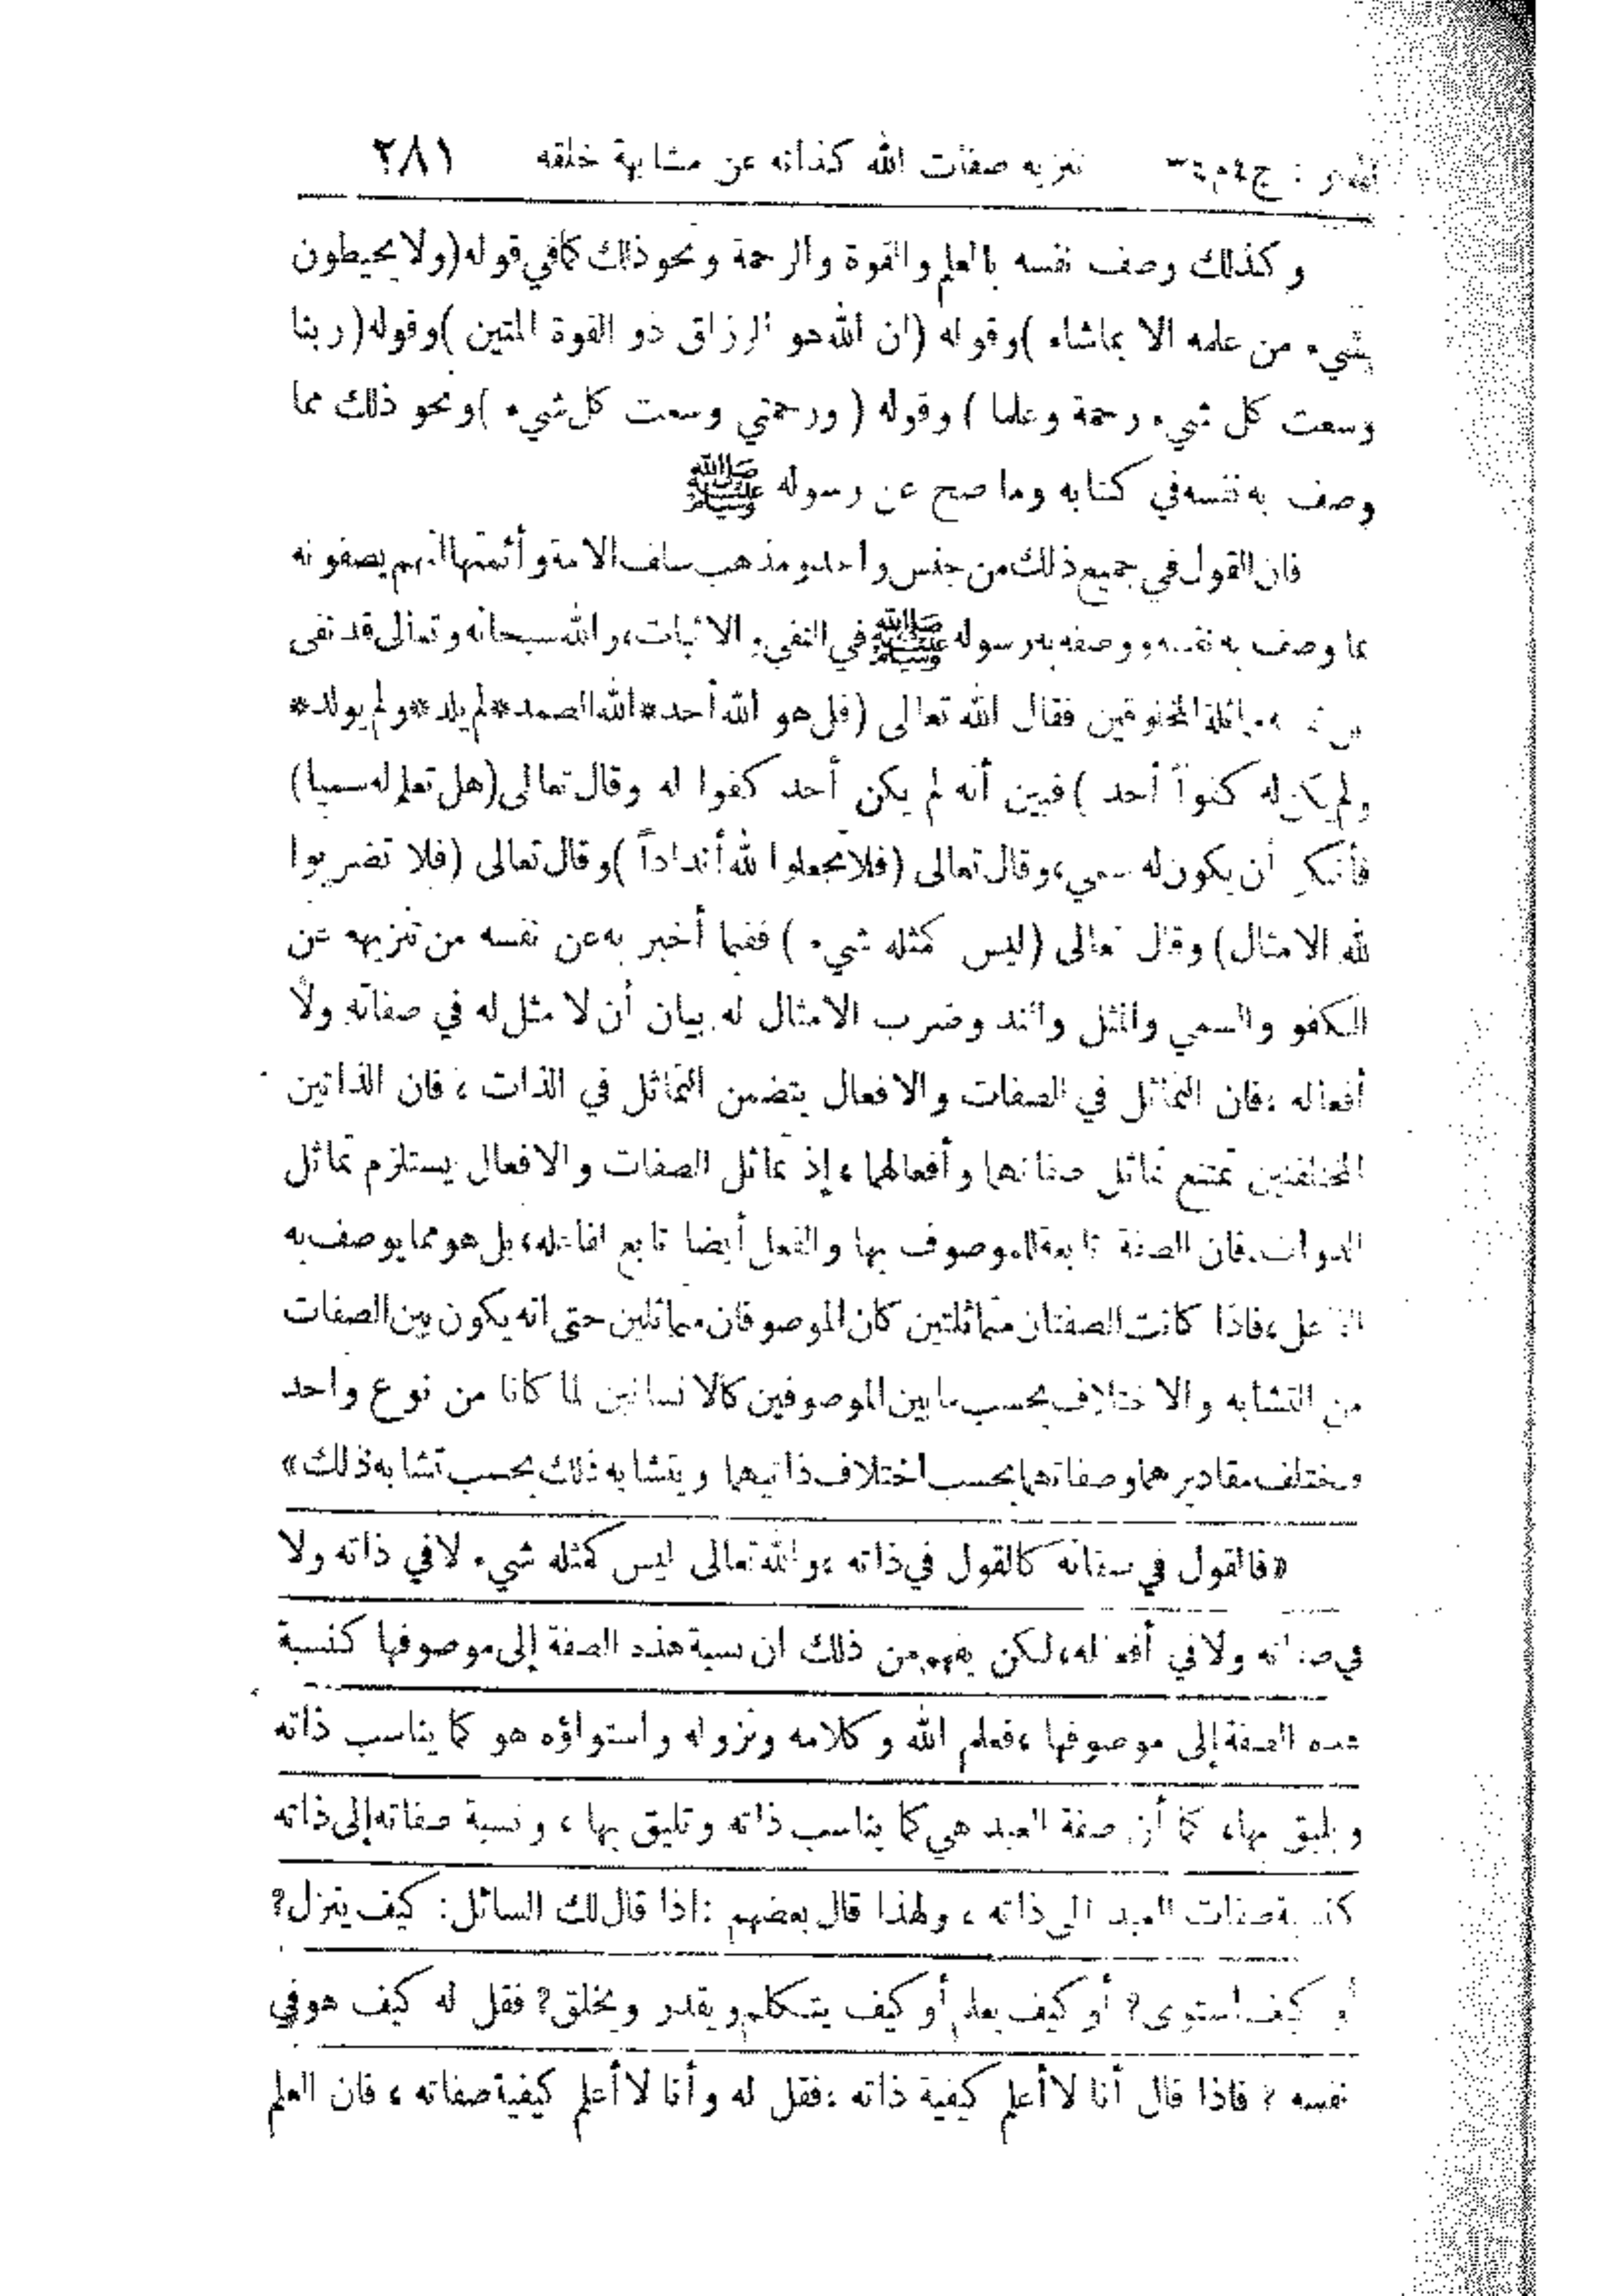 المنار : ج٤م٣٤ تنزيه صفات الله كذاته عن مشابهة خلقه ٢٨١
وكذلك وصف نفسه بالعلم والقوة والرحمة ونحو ذلك كما في قوله (ولا يحيطون
بشيء من علمه الا بما شاء ) وقوله (ان الله هو الرزاق ذو القوة المتين ) وقوله ( ربنا
وسعت كل شيء رحمة وعلما ) وقوله ( ورحمتي وسعت كل شيء ) ونحو ذلك مما
وصف به نفسه في كتابه وما صح عن رسوله ﷺ
فان القول في جميع ذلك من جنس واحد ومذهب سلف الامة وأئمتها انهم يصفونه
بما وصف به نفسه ووصفه به رسوله ﷺ في النفي والاثبات، والله سبحانه وتعالى قد نفى
عن نفسه مماثلة المخلوقين فقال الله تعالى (قل هو الله أحد * الله الصمد * لم يلد * ولم يولد *
ولم يكن له كفواً أحد ) فبين أنه لم يكن أحد كفوا له وقال تعالى (هل تعلم له سميا)
فأنكر أن يكون له سمي، وقال تعالى (فلا تجعلوا لله أنداداً ) وقال تعالى (فلا تضربوا
لله الامثال) وقال تعالى (ليس كمثله شيء ) ففيما أخبر به عن نفسه من تنزيهه عن
الكفو والسمي والمثل والند وضرب الامثال له بيان أن لا مثل له في صفاته ولا
أفعاله ، فان التماثل في الصفات والافعال يتضمن التماثل في الذات ، فان الذاتين
المختلفتين يمتنع تماثل صفاتهما وأفعالهما ، إذ تماثل الصفات والافعال يستلزم تماثل
الذوات. فان الصفة تابعة للموصوف بها والفعل أيضا تابع لفاعله، بل هو مما يوصف به
الفاعل، فاذا كانت الصفتان متماثلتين كان الموصوفان متماثلين حتى انه يكون بين الصفات
من التشابه والاختلاف بحسب ما بين الموصوفين كالانسانين لما كانا من نوع واحد
فتختلف مقاديرهما وصفاتهما بحسب اختلاف ذاتيهما ويتشابه ذلك بحسب تشابه ذلك »
« فالقول في صفاته كالقول في ذاته ، والله تعالى ليس كمثله شيء لا في ذاته ولا
في صفاته ولا في أفعاله، لكن يفهم من ذلك ان نسبة هذه الصفة إلى موصوفها كنسبة
هذه الصفة إلى موصوفها ، فعلم الله وكلامه ونزوله واستواؤه هو كما يناسب ذاته
ويليق بها، كما أن صفة العبد هي كما يناسب ذاته وتليق بها ، ونسبة صفاته إلى ذاته
كنسبة صفات العبد إلى ذاته ، ولهذا قال بعضهم : اذا قال لك السائل : كيف ينزل ؟
أو كيف استوى ؟ أو كيف يعلم أو كيف يتكلم ويقدر ويخلق ؟ فقل له كيف هو في
نفسه ؟ فاذا قال أنا لا أعلم كيفية ذاته ، فقل له وأنا لا أعلم كيفية صفاته ، فان العلم